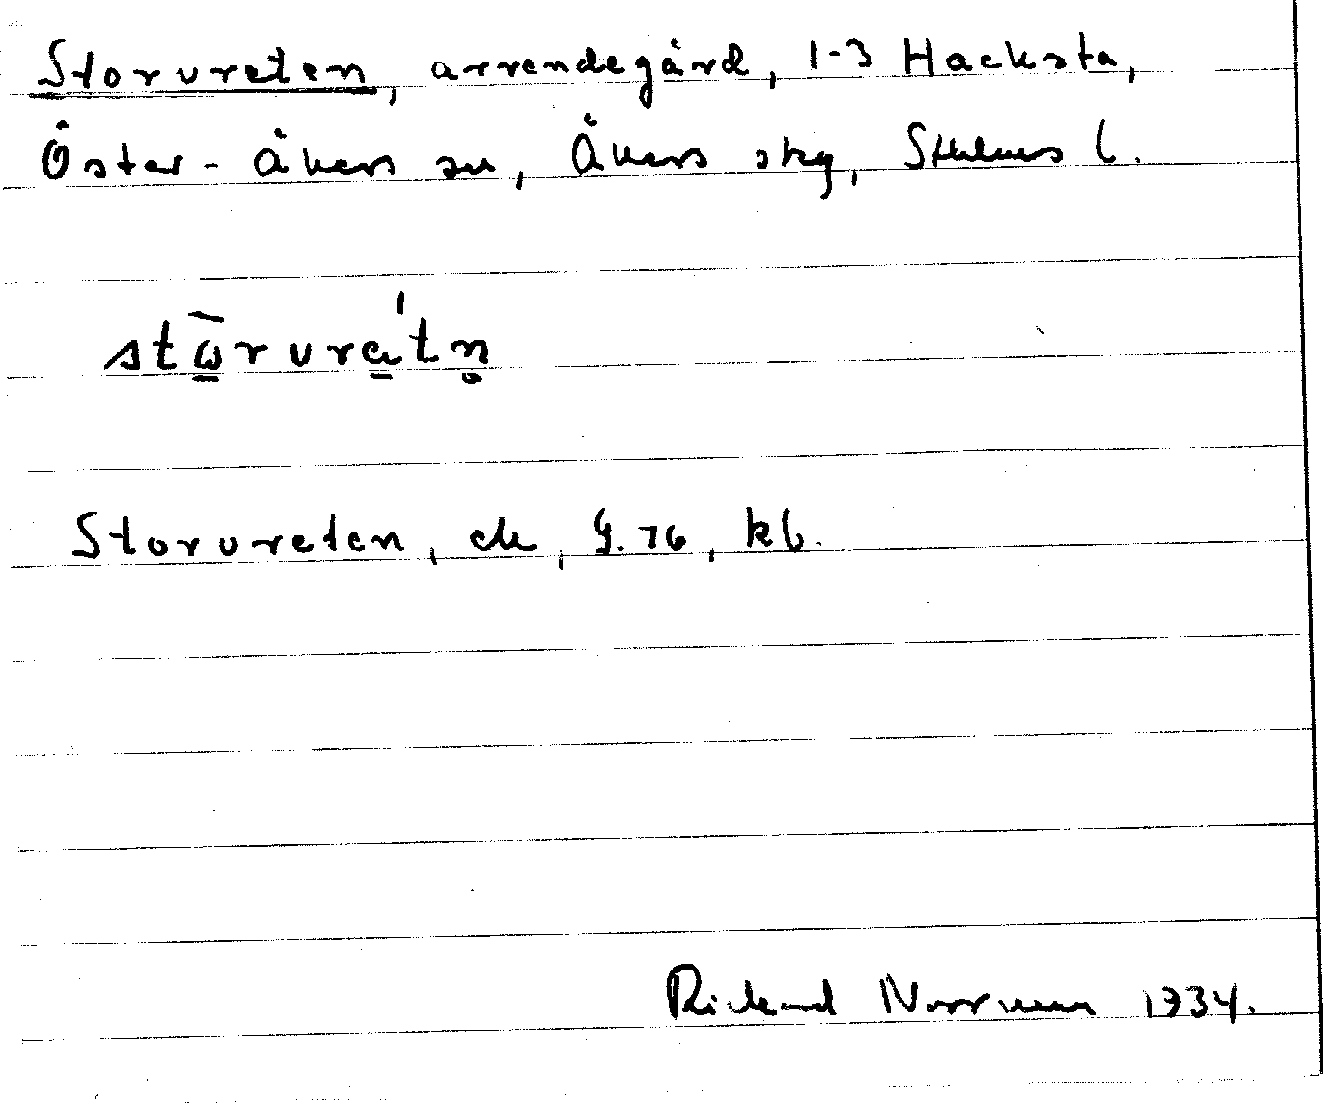 Storvreten, arrendegård, 1-3 Hacksta,
Öster-Åkers sn, Åkers skg, Sthlms l.
stω̄rvrätn̥
Storvreten, ek, G. 76, kb.
Rickard Norrman 1934.